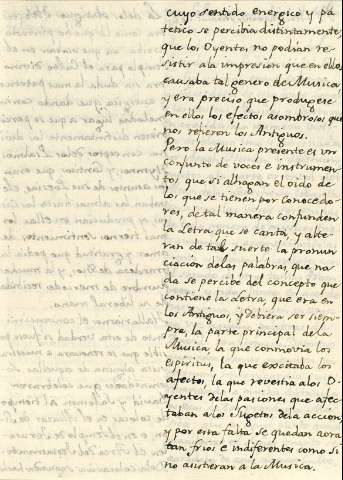 cuyo sentido energico y pa
tetico se percibia distintamente
que los Oyentes no podian re-
sistir a la impresion que en ellos
causaba tal genero de Musica,
y era preciso que produgese
en ellos los efectos asombrosos que
nos refieren los Antiguos.
Pero la Musica presente es un
conjunto de voces è instrumen
tos, que si alhagan el oido de
los que se tienen por conocedo-
res, de tal manera confunden
la Letra que se canta, y alte-
ran de tal suerte la pronun-
ciacion de las palabras, que na-
da se percibe del concepto que
contiene la Letra, que era en
los Antiguos, y debiera ser siem-
pre, la parte principal de la
Musica, la que conmovia los
espiritus, la que excitaba los
afectos, la que revestia a los O-
yentes de las pasiones que afec-
taban a los Sugetos de la accion,
y por esta falta se quedan aora
tan frios è indiferentes como si
no asistieran a la Musica.